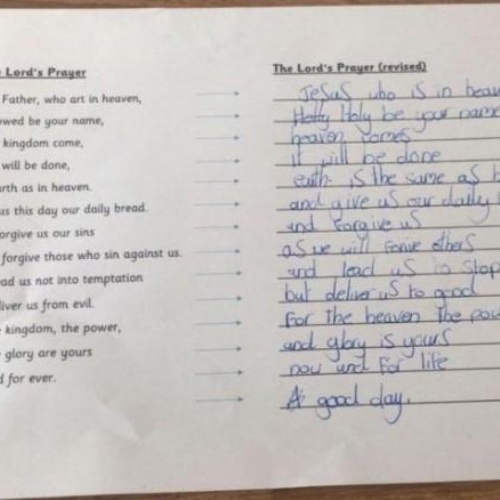 Lord's Prayer
The Lord's Prayer (revised)
Father, who art in heaven,
Jesus who is in heav
wed be your name,
Holy be your nam
kingdom come,
heaven comes
will be done,
it will be done
rth as in heaven.
earth is the same as h
us this day our daily bread.
and give us our daily
orgive us our sins
and forgive us
forgive those who sin against us.
as we will forive others
ad us not into temptation
and lead us to stop
iver us from evil.
but deliver us to good
kingdom, the power,
For the heaven the pow
glory are yours
and glory is yours
d for ever.
now and for life
A good day.